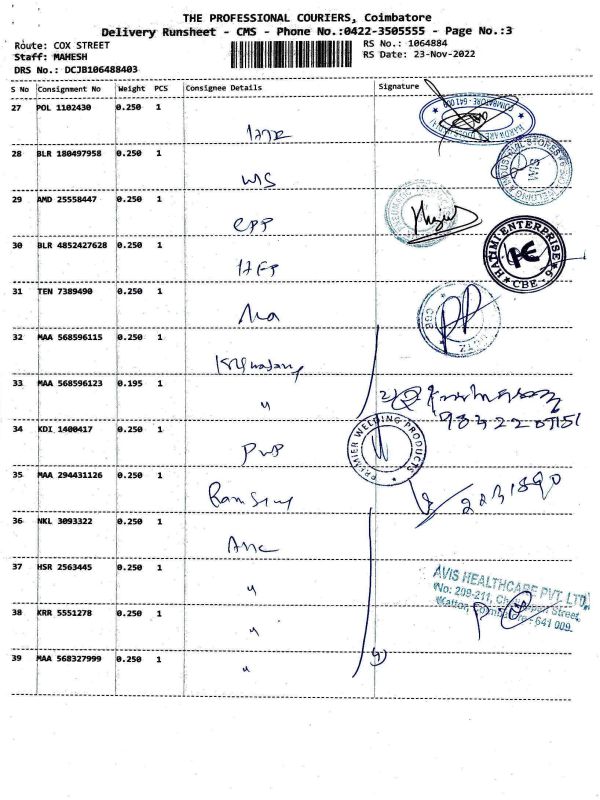 THE PROFESSIONAL COURIERS, Coimbatore
Delivery Runsheet - CMS - Phone No.:0422-3505555 - Page No.:3
Route: COX STREET
RS No.: 1064884
Staff: MAHESH
RS Date: 23-Nov-2022
DRS No.: DCJB106488403
S No Consignment No Weight PCS Consignee Details Signature
27 POL 1102430 0.250 1
28 BLR 180497958 0.250 1
WIS
29 AMD 25558447 0.250 1
CPP
30 BLR 4852427628 0.250 1
HATIMI ENTERPRISE
CBE - 9
HEP
31 TEN 7389490 0.250 1
32 MAA 568596115 0.250 1
33 MAA 568596123 0.195 1
"
34 KDI 1400417 0.250 1
PREMIER WELDING PRODUCTS
PWP
35 MAA 294431126 0.250 1
Ram Sing
36 NKL 3093322 0.250 1
37 HSR 2563445 0.250 1
"
AVIS HEALTHCARE PVT. LTD.
No: 209-211, Street,
Kattoor, Coimbatore - 641 009.
38 KRR 5551278 0.250 1
"
39 MAA 568327999 0.250 1
"